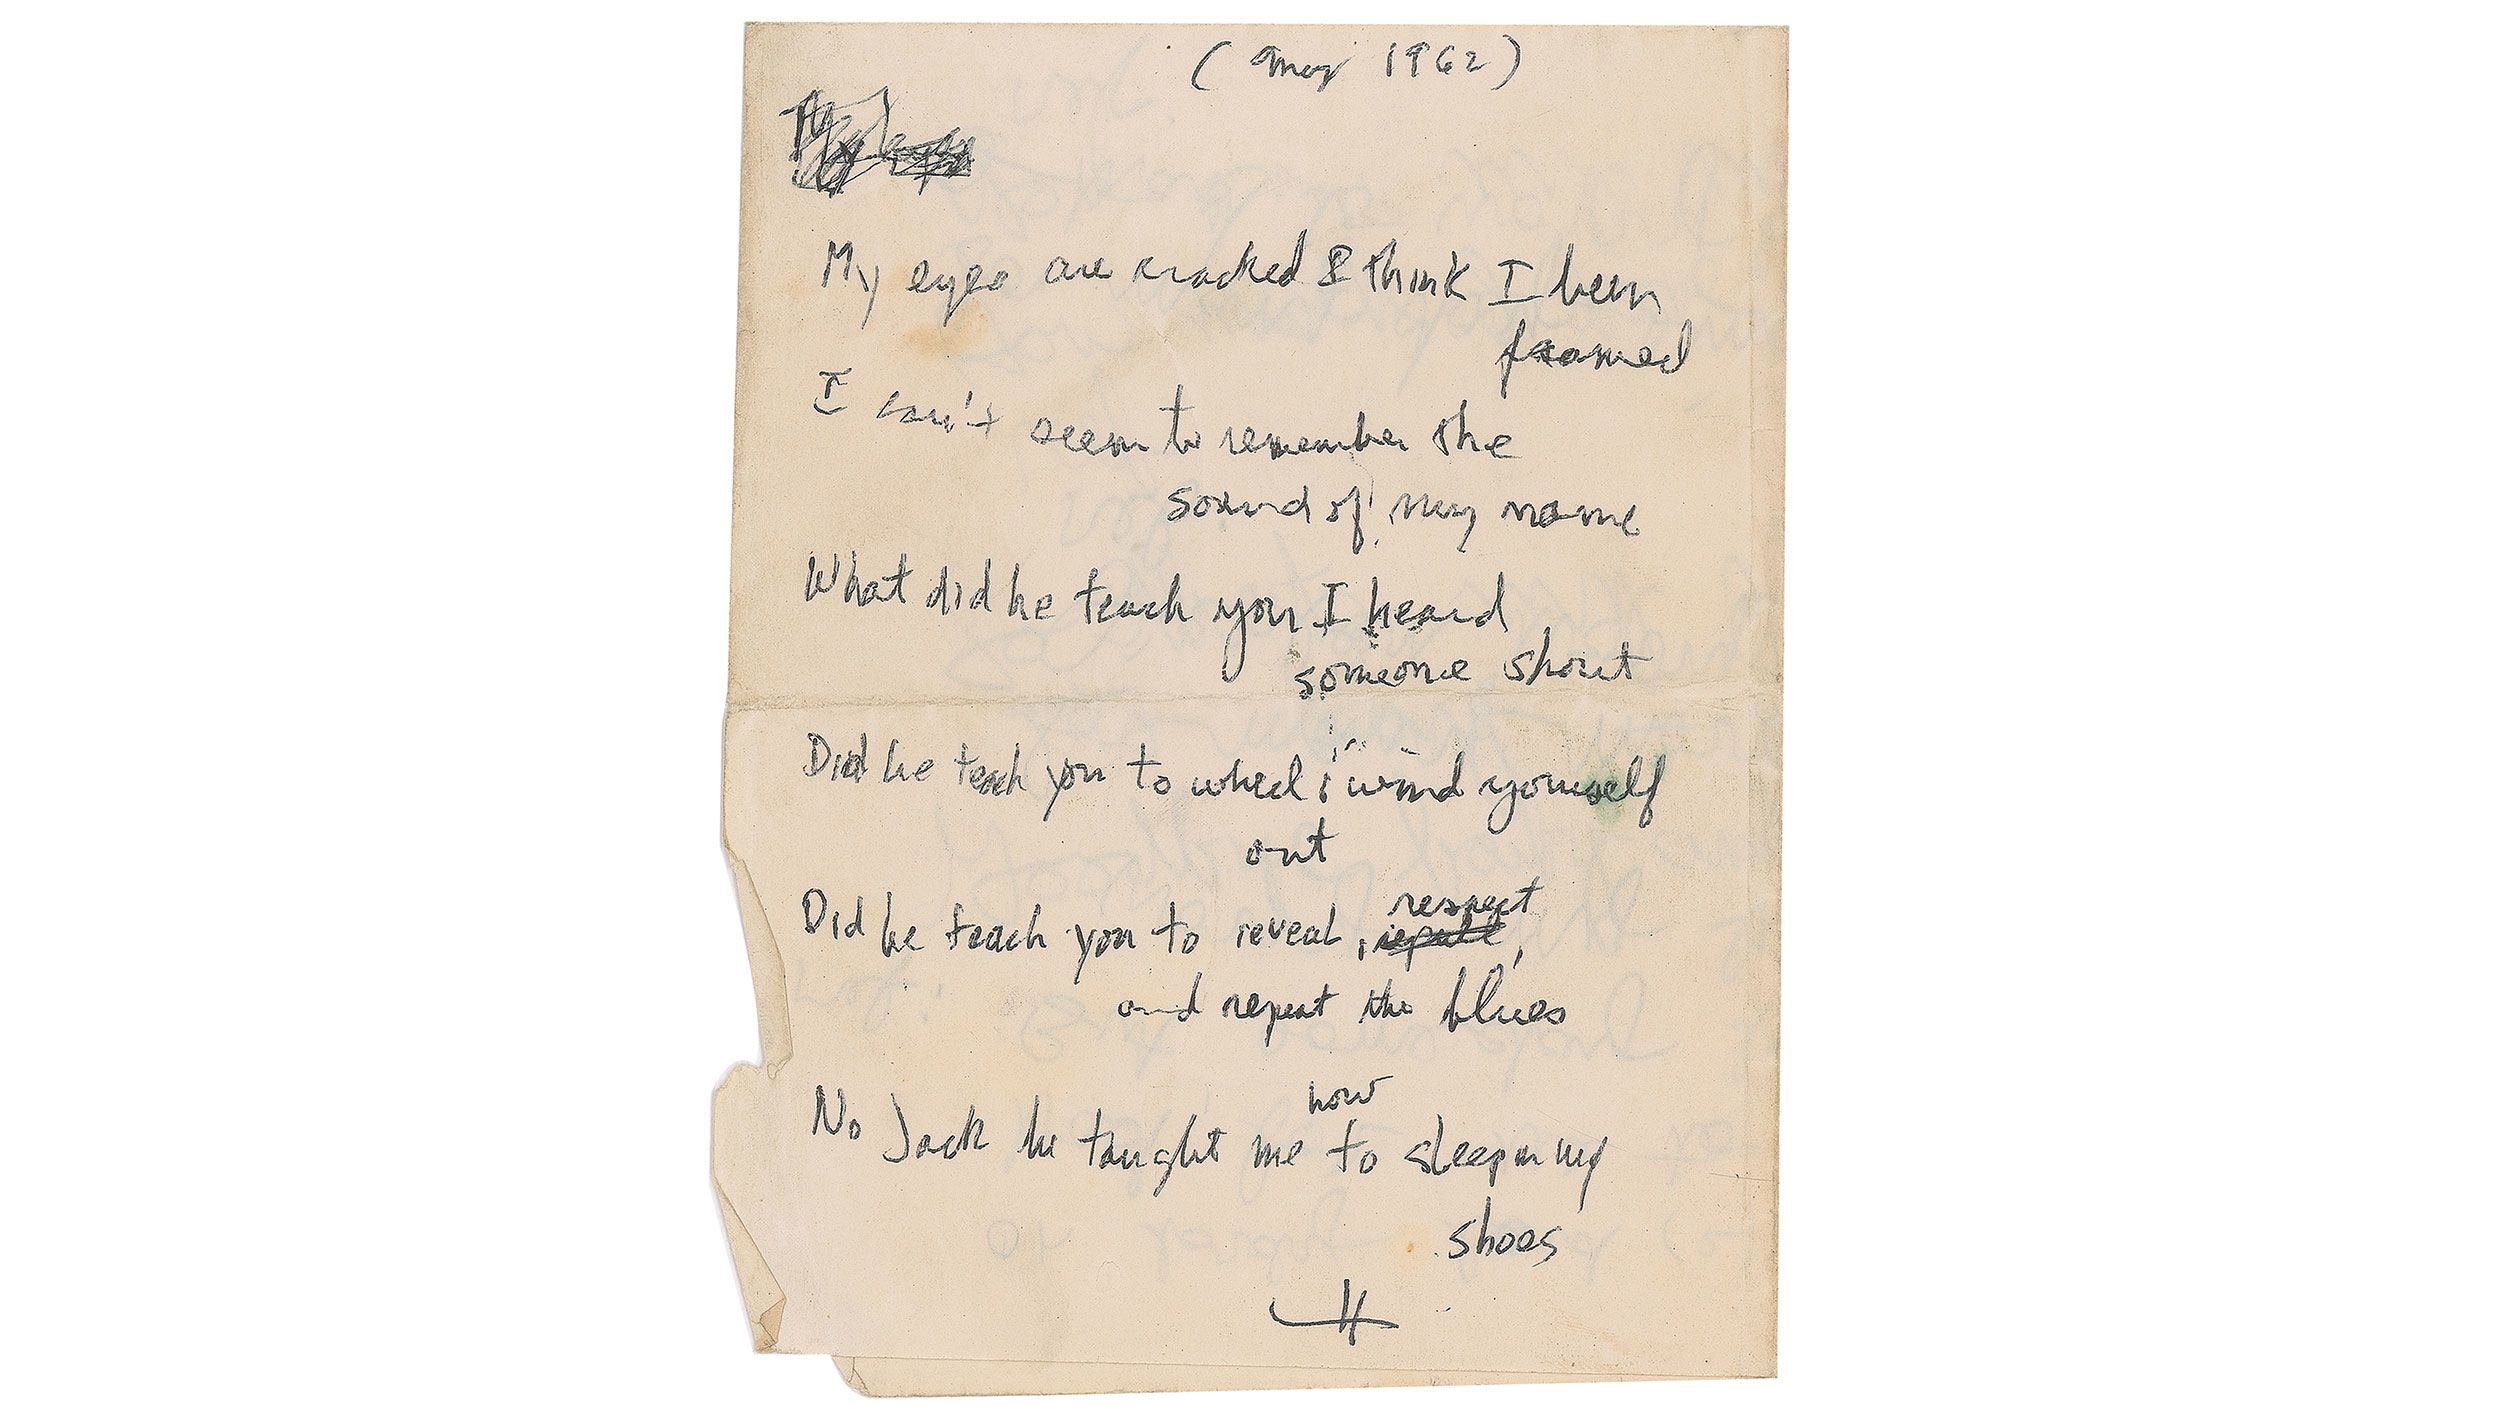 (May 1962)
My eyes are cracked I think I been
framed
I can't seem to remember the
sound of my name
What did he teach you I heard
someone shout
Did he teach you to wheel & wind yourself
out
respect
Did he teach you to reveal, ,
and repeat the blues
how
No Jack he taught me to sleep in my
shoes